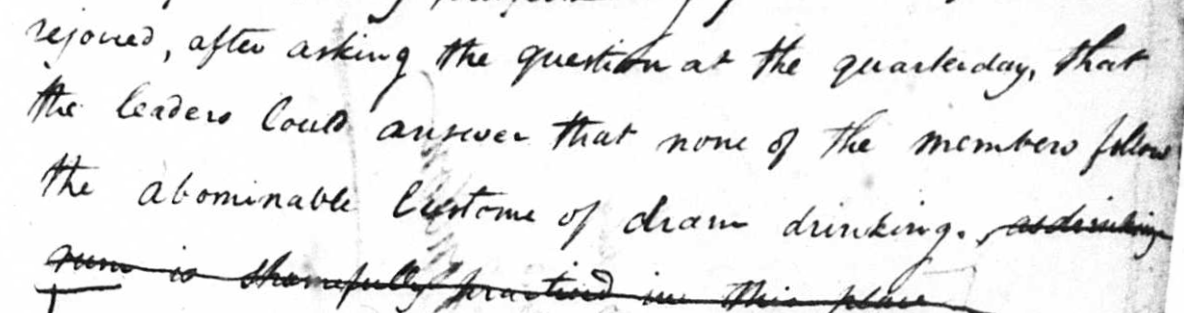 rejoued, after asking the question at the quarterday, that
the leaders Could answer that none of the members follow
the abominable Custome of dram drinking. as drinking
rum is shamefully practised in this place